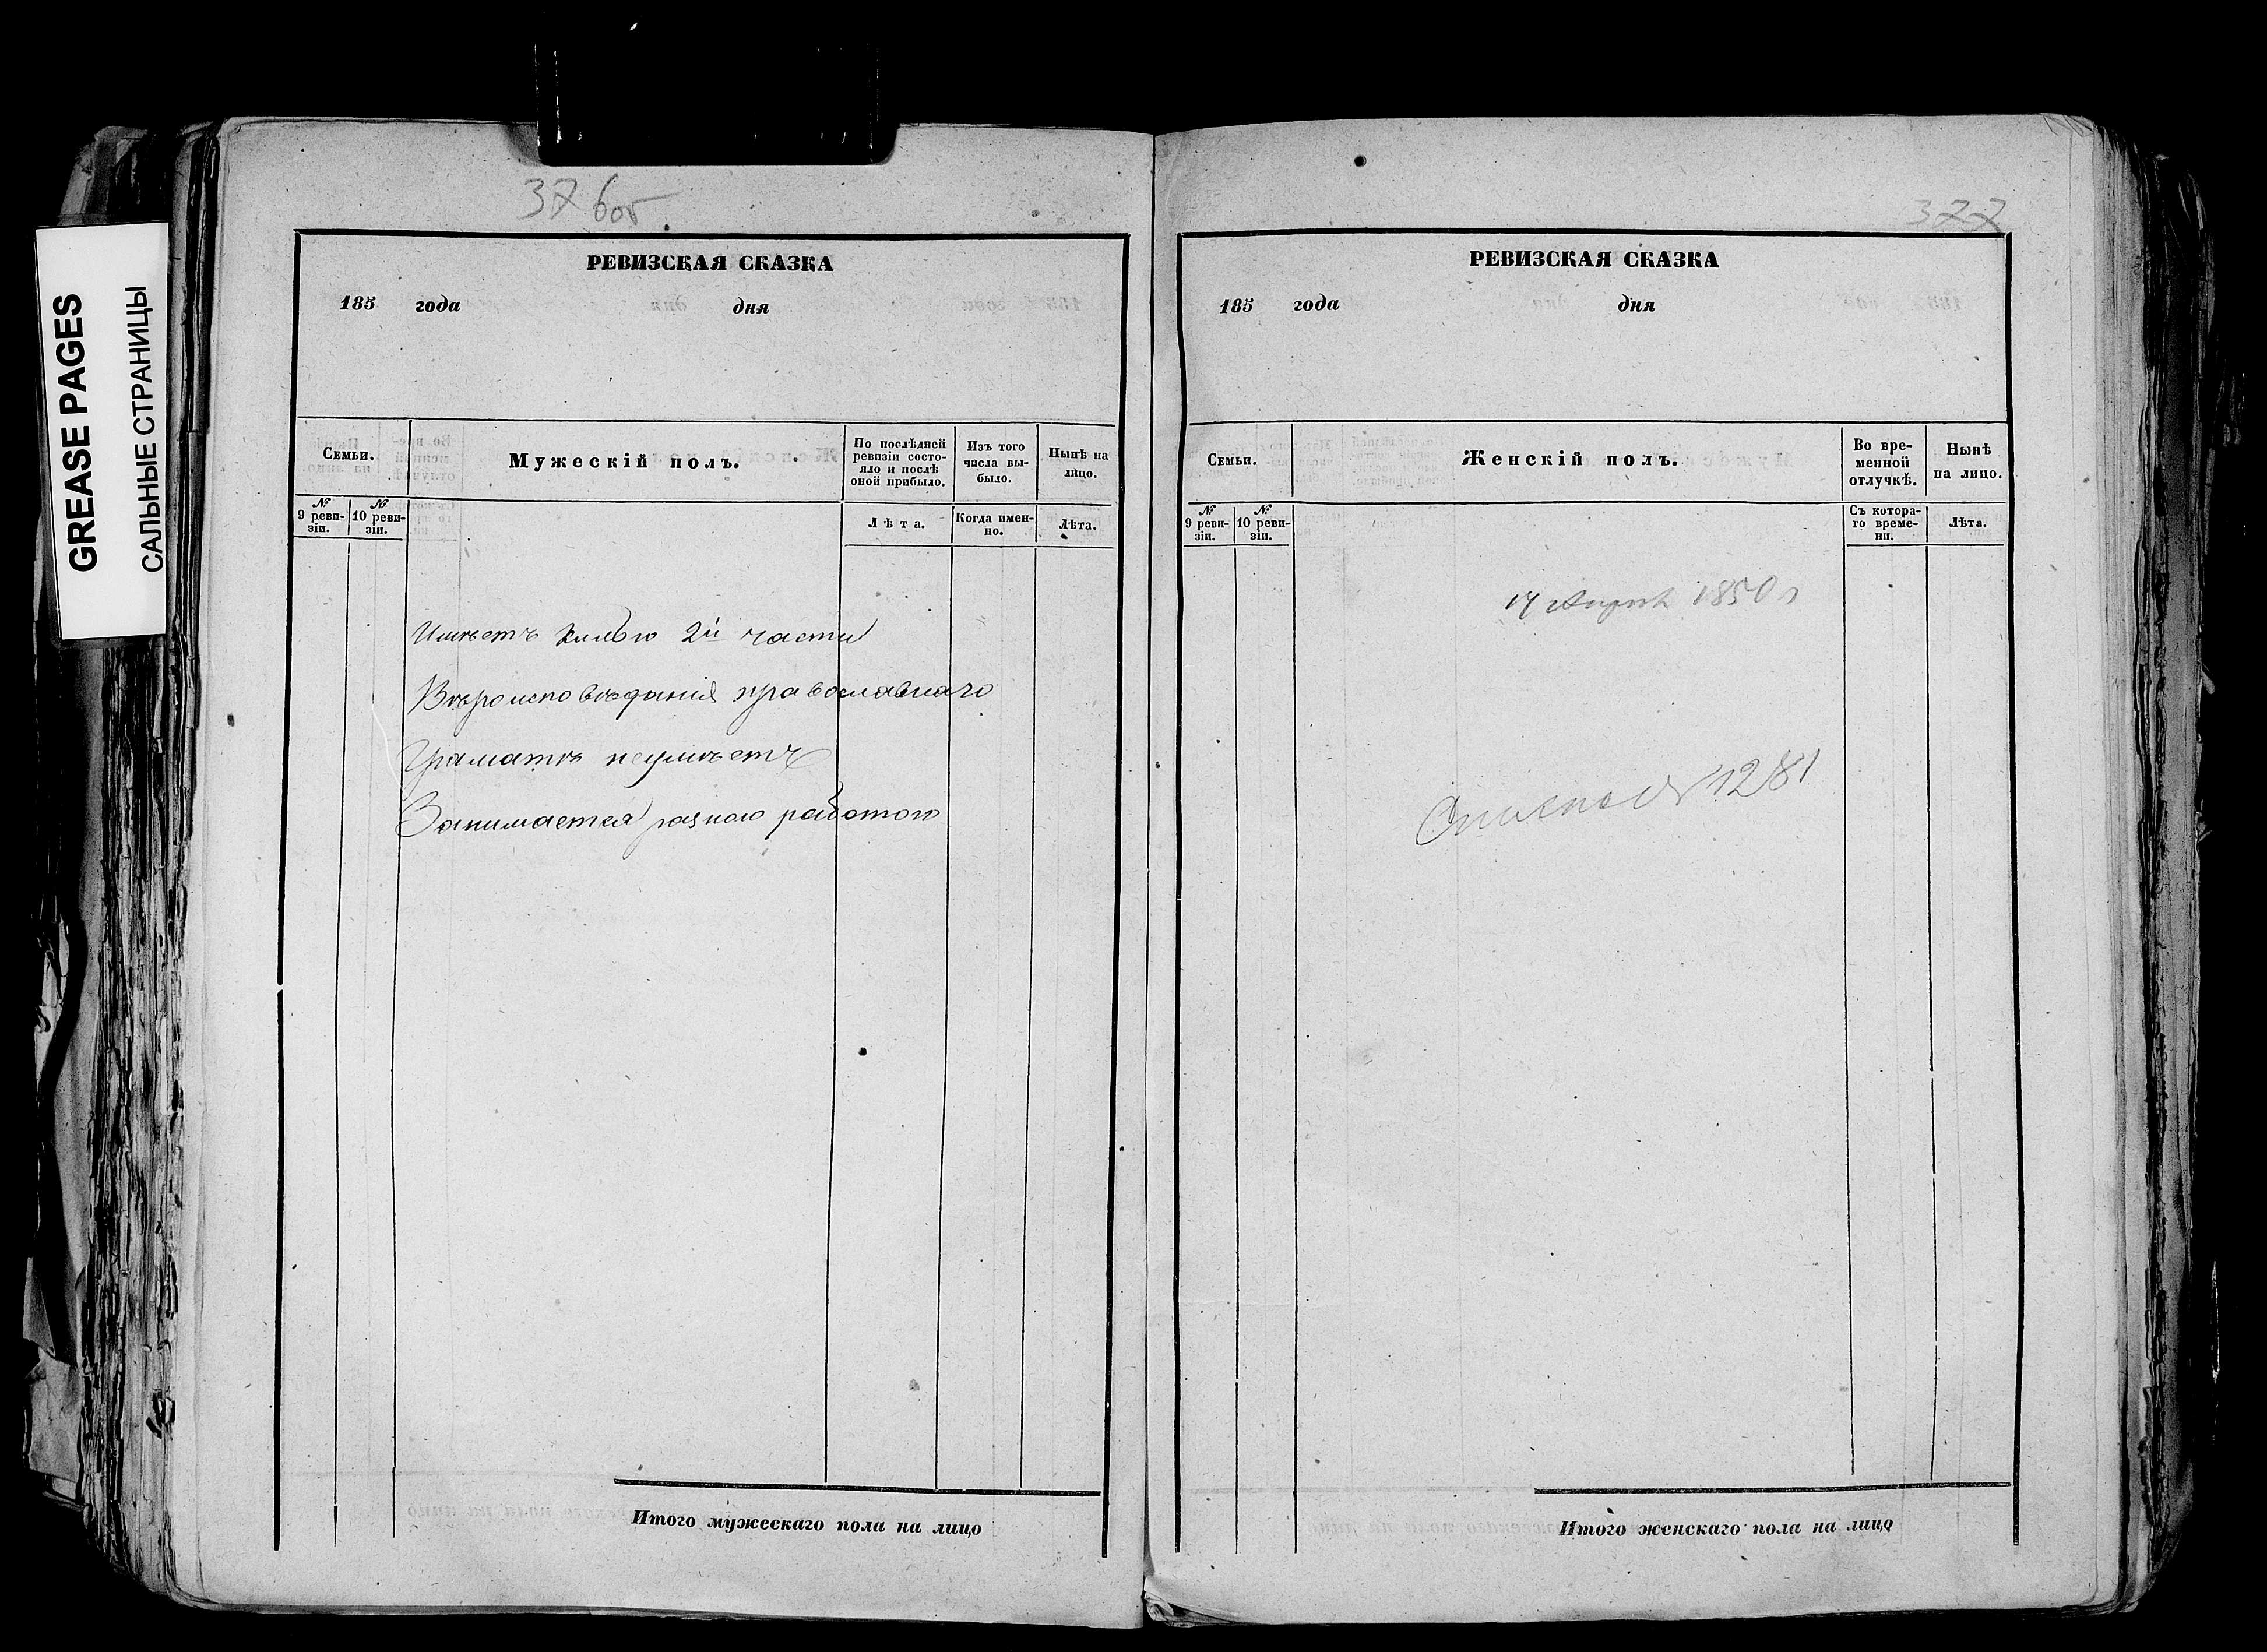 GREASE PAGES
САЛЬНЫЕ СТРАНИЦЫ
376об.
РЕВИЗСКАЯ СКАЗКА
185 года дня
Семьи.
Мужескій полъ.
По послѣдней ревизіи состояло и послѣ оной прибыло.
Изъ того числа выбыло.
Нынѣ на лицо.
№ 9 ревизіи.
№ 10 ревизіи.
Лѣта.
Когда именно.
Лѣта.
Имѣетъ 2й части
Вѣроисповѣданія православнаго
Граматѣ неумѣетъ
Занимается разною работою
Итого мужескаго пола на лицо
377
РЕВИЗСКАЯ СКАЗКА
185 года дня
Семьи.
Женскій полъ.
Во временной отлучкѣ.
Нынѣ на лицо.
№ 9 ревизіи.
№ 10 ревизіи.
Съ котораго времени.
Лѣта.
17 1850 г
№ 1281
Итого женскаго пола на лицо